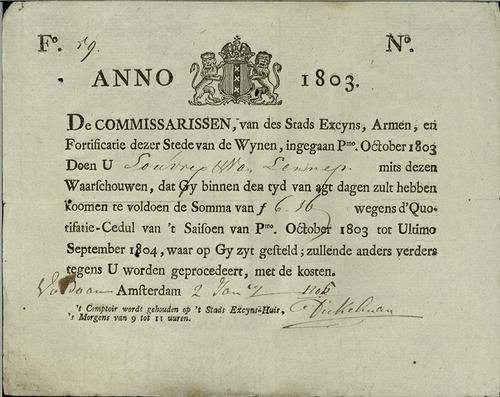 Fo. 59. No.
ANNO 1803.
De COMMISSARISSEN, van des Stads Excyns, Armen, en
Fortificatie dezer Stede van de Wynen, ingegaan Pmo. October 1803
Doen U Louvrex Van Lennep mits dezen
Waarschouwen, dat Gy binnen den tyd van agt dagen zult hebben
koomen te voldoen de Somma van ƒ 6.16 wegens d'Quo-
tisatie-Cedul van 't Saisoen van Pmo. October 1803 tot Ultimo
September 1804, waar op Gy zyt gesteld; zullende anders verders
tegens U worden geprocedeert, met de kosten.
Voldaan Amsterdam 2 Jany
't Comptoir wordt gehouden op 't Stads Excyns-Huis,
's Morgens van 9 tot 11 uuren.